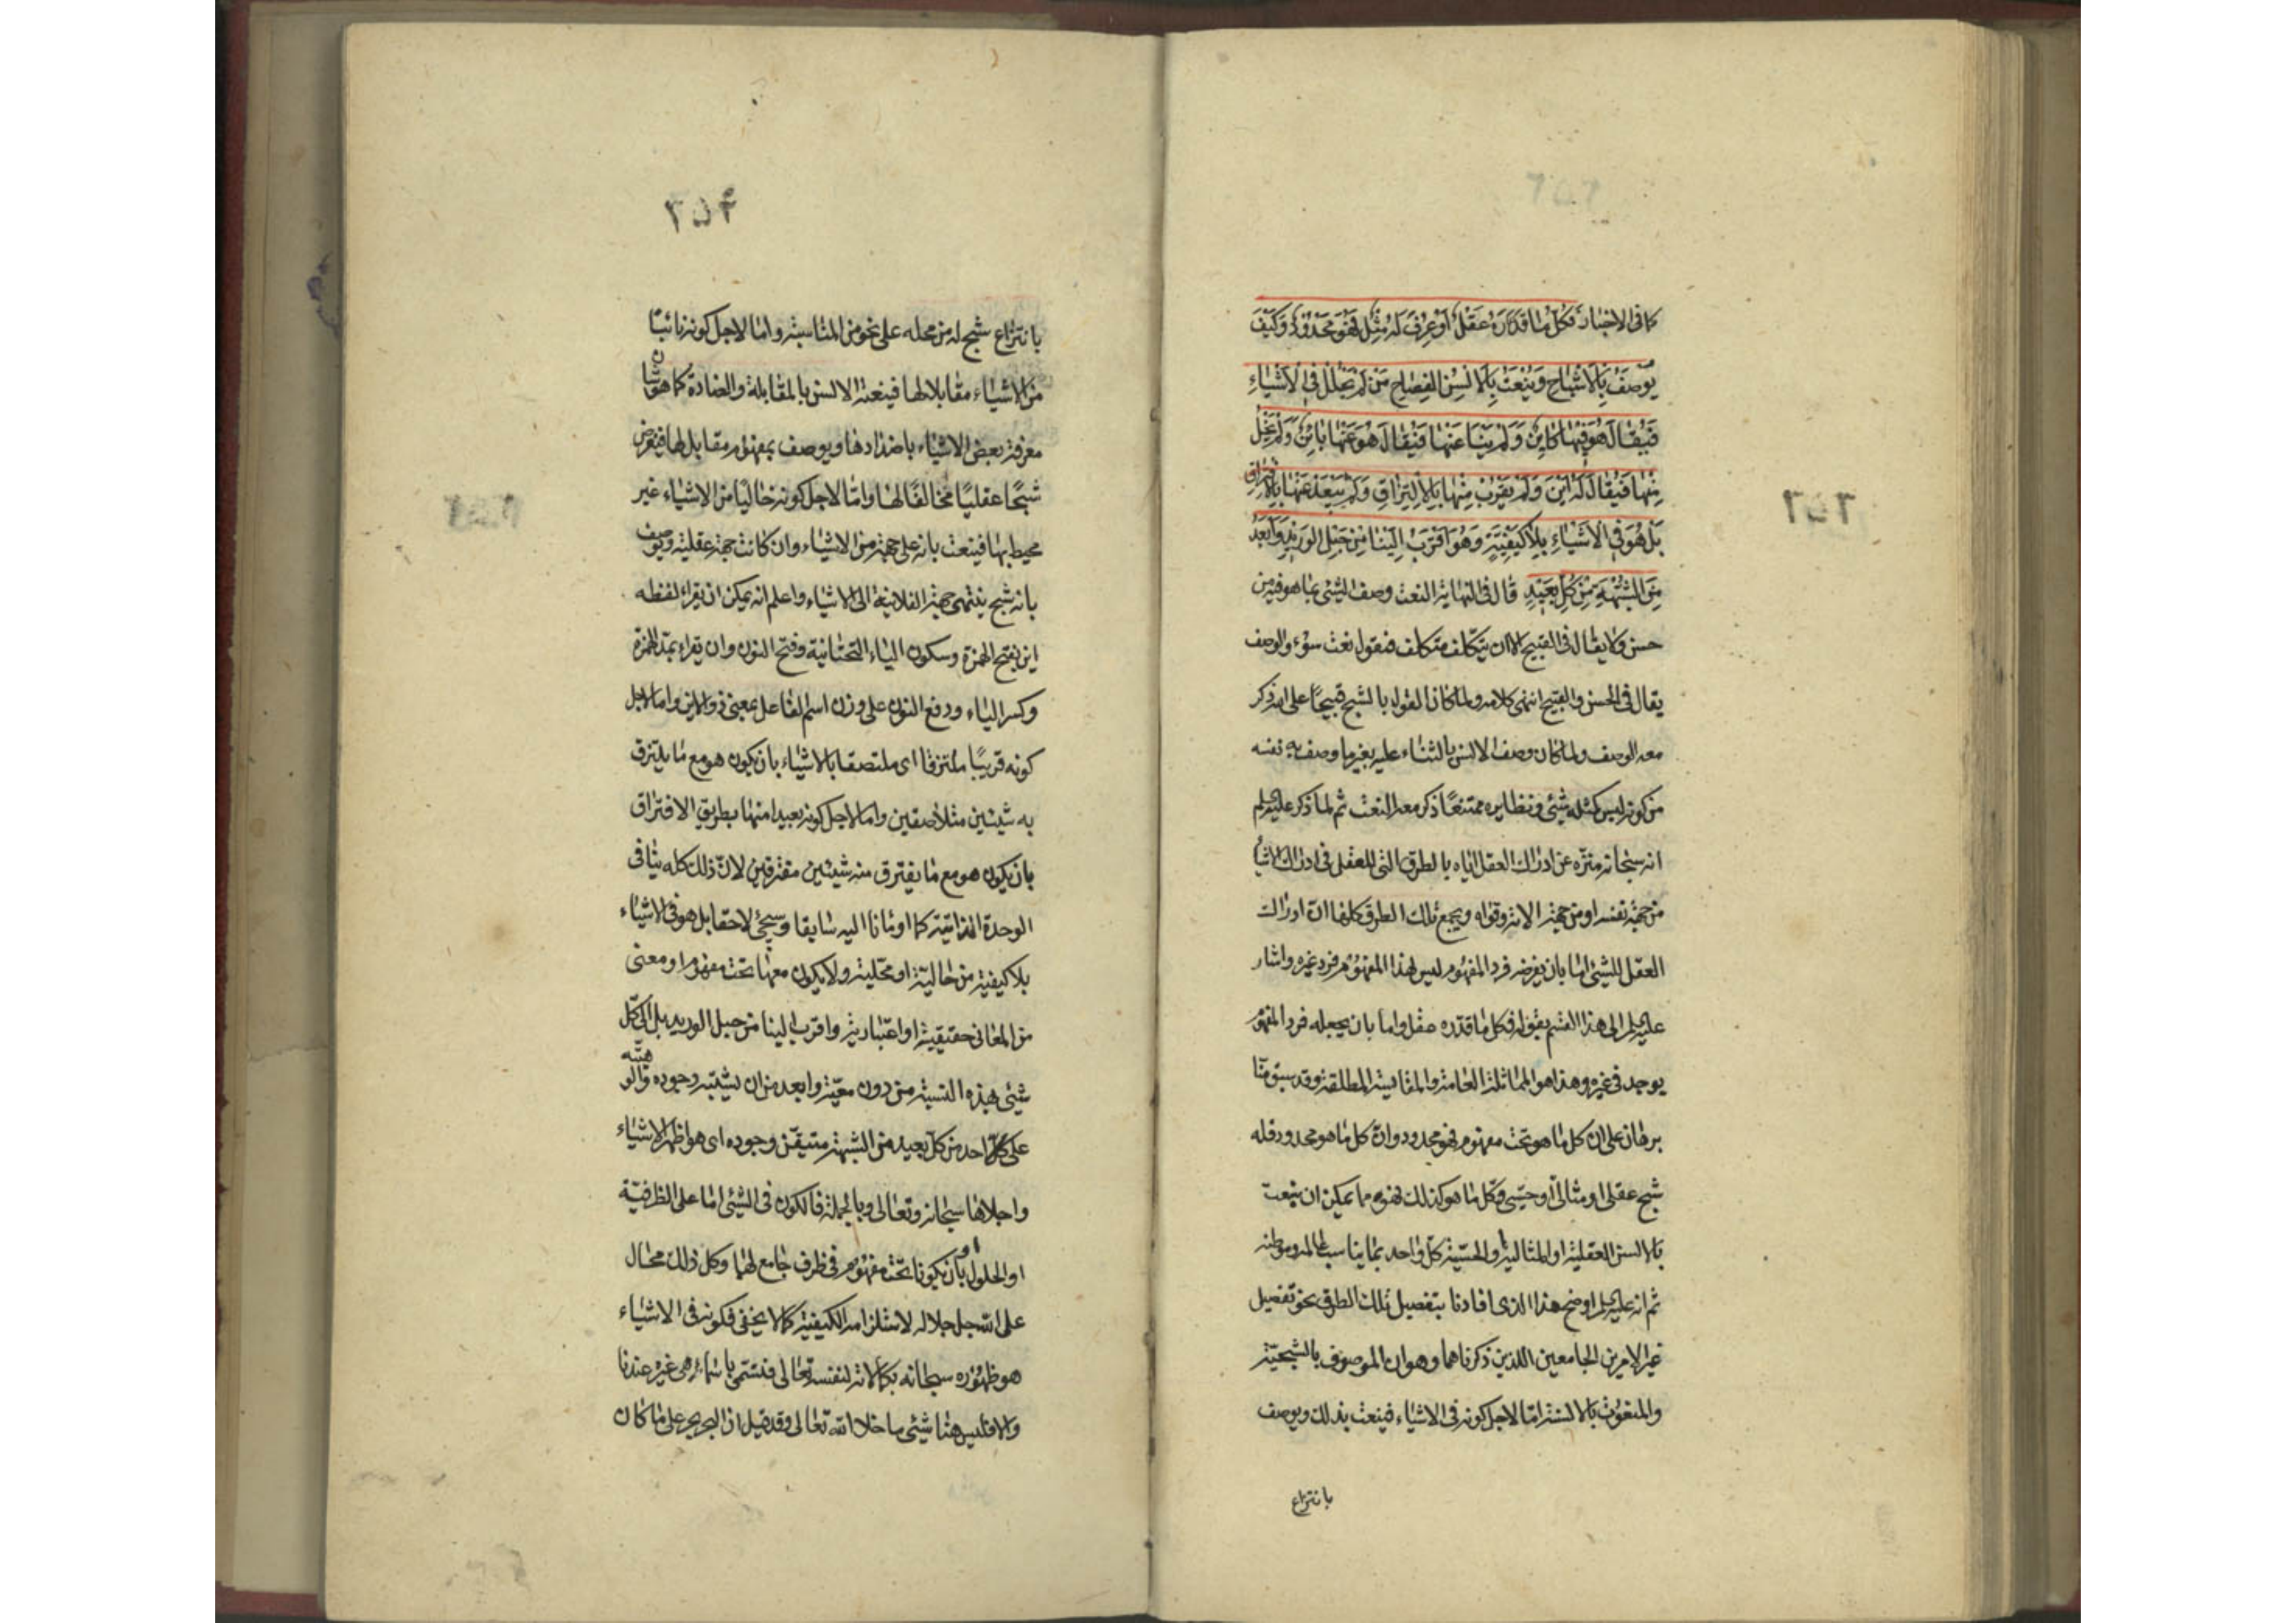 كما فى الاخبار فكُلّ ما قدّره عَقْل أو عُرِفَ لَه مِثْل فَهُوَ مَحْدُود وَكَيْفَ
يُوصَفُ بِالاَشْبَاحِ وَيُنْعَتُ بِالاَلْسُنِ الفِصَاحِ مَنْ لَمْ يَحْلُلْ فِى الاَشْيَاءِ
فَيُقالَ هُوَ فِيهَا كَايِنٌ وَلَمْ يَنْأَ عَنْهَا فَيُقَالَ هُوَ عَنْهَا بَايِنٌ وَلَمْ يَخْلُ
مِنْهَا فَيُقَالَ لَهُ اَيْنَ وَلَمْ يَقْرُبْ مِنْهَا بِالاِلْتِزَاقِ وَلَمْ يَبْعُدْ عَنْهَا بِالاِفْتِرَاقِ
بَلْ هُوَ فِى الاَشْيَاءِ بِلاَ كَيْفِيَّةٍ وَهُوَ اَقْرَبُ اِلَيْنَا مِنْ حَبْلِ الوَرِيدِ وَاَبْعَدُ
مِنَ الشُّبْهَةِ مِنْ كُلِّ بَعِيْدٍ قال فى النهاية النعت وصف الشئ بما هو فيه من
حسن ولا يقال فى القبيح الا ان يتكلف متكلف فيقول نعت سوء والوصف
يقال فى الحسن والقبيح انتهى كلامه ولما كان القول بالشبح قبيحًا على الله ذكر
معه الوصف ولما كان وصف الالسن بالثناء عليه بغير ما وصف به نفسه
من كونه ليس كمثله شئ ونظايره ممتنعًا ذكر معه النعت ثم لما ذكر عليه السلم
انه سبحانه منزّه عن ادراك العقل اياه بالطرق التى للعقل فى ادراك الاشياء
من جهة نفسه او من جهة الاته وقواه ويجمع تلك الطرق كلها انّ ادراك
العقل للشئ اما بان يفرضه فرد المفهوم ليس لهذا المفهوم فرد غيره واشار
عليه السلم الى هذا القسم بقوله فكل ما قدّره عقل واما بان يجعله فرد المفهوم
يوجد فى غيره وهذا هو المماثلة العامة والمقايسة المطلقة وقد سبق منّا
برهان على ان كل ما هو تحت مفهوم فهو محدود وانّ كل ما هو محدود فله
شبح عقلى او مثالى او حسّى وكل ما هو كذلك فهو مما يمكن ان ينعت
بالالسن العقلية او المثالية والحسّية كلّ واحد بما يناسب عالمه وموطنه
ثم انه عليه السلم اوضح هذا الذى افادنا بتفصيل تلك الطرق نحو تفصيل
غير الامرين الجامعين اللذين ذكرناهما وهو ان الموصوف بالشبحيّة
والمنعوت بالالسنة امّا لاجل كونه فى الاشياء فينعت بذلك ويوصف
بانتزاع
٢٥٣
بانتزاع شبح له من محله على نحو من المناسبة واما لاجل كونه نائيًا
من الاشياء مقابلا لها فينعته الالسن بالمقابلة والعنادة كما هو شان
معرفة بعض الاشياء باضدادها ويوصف بمفهوم مقابل لها فيفرض
شبحًا عقليًا مخالفًا لها وامّا لاجل كونه خاليًا من الاشياء غير
محيط بها فينعت بانه على جهة من الاشياء وان كانت جهة عقلية ويوصف
بانه شبح ينتهى جهته الفلانية الى الاشياء واعلم انه يمكن ان يقراء لفظه
اين بفتح الهمزة وسكون الياء التحتانية وفتح النون وان يقراء بمدّ الهمزة
وكسر الياء ودفع النون على وزن اسم الفاعل بمعنى ذو الاين واما لاجل
كونه قريبًا ملتزقا اى ملتصقا بالاشياء بان يكون هو مع ما يلتزق
به شيئين متلاصقين واما لاجل كونه بعيدا منها بطريق الافتراق
بان يكون هو مع ما يفترق منه شيئين مفترقين لانّ ذلك كله ينافى
الوحدة الذاتيّة كما اومانا اليه سابقا وسيجئ لاحقا بل هو فى الاشياء
بلا كيفية من حاليّة او محّلية ولا يكون معها تحت مفهوم او معنى
من المعانى حقيقية او اعتبارية واقرب الينا من حبل الوريد بل الى كلّ
شئ بهذه النسبة من دون معيّة وابعد من ان يشتبه وجوده والوهيته
على كلّ احد من كل بعيد من الشبهة متيقّن وجوده اى هو اظهر الاشياء
واجلاها سبحانه وتعالى وبالجملة فالكون فى الشئ اما على الظرفيّة
او الحلول او بان يكونا تحت مفهوم فى ظرف جامع لهما وكل ذلك محال
على الله جل جلاله لاستلزامه الكيفية كما لا يخفى فكونه فى الاشياء
هو ظهوره سبحانه بكمالاته لنفسه تعالى فتسمّى باسماء هى غيره عندنا
والا فليس هنا شئ ما خلا الله تعالى وقد قيل ان البحر بحر على ما كان